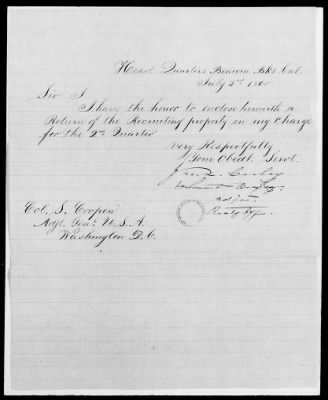 Head Quarters Benicia Bks Cal.
July 2nd 1860
Sir I
I have the honor to inclose herewith a
Return of the Recruiting property in my Charge
for the 2nd Quarter
Very Respectfully
Your Obedt Servt.
Col. S. Cooper
Adjt. Genl U. S. A.
Washington D. C.